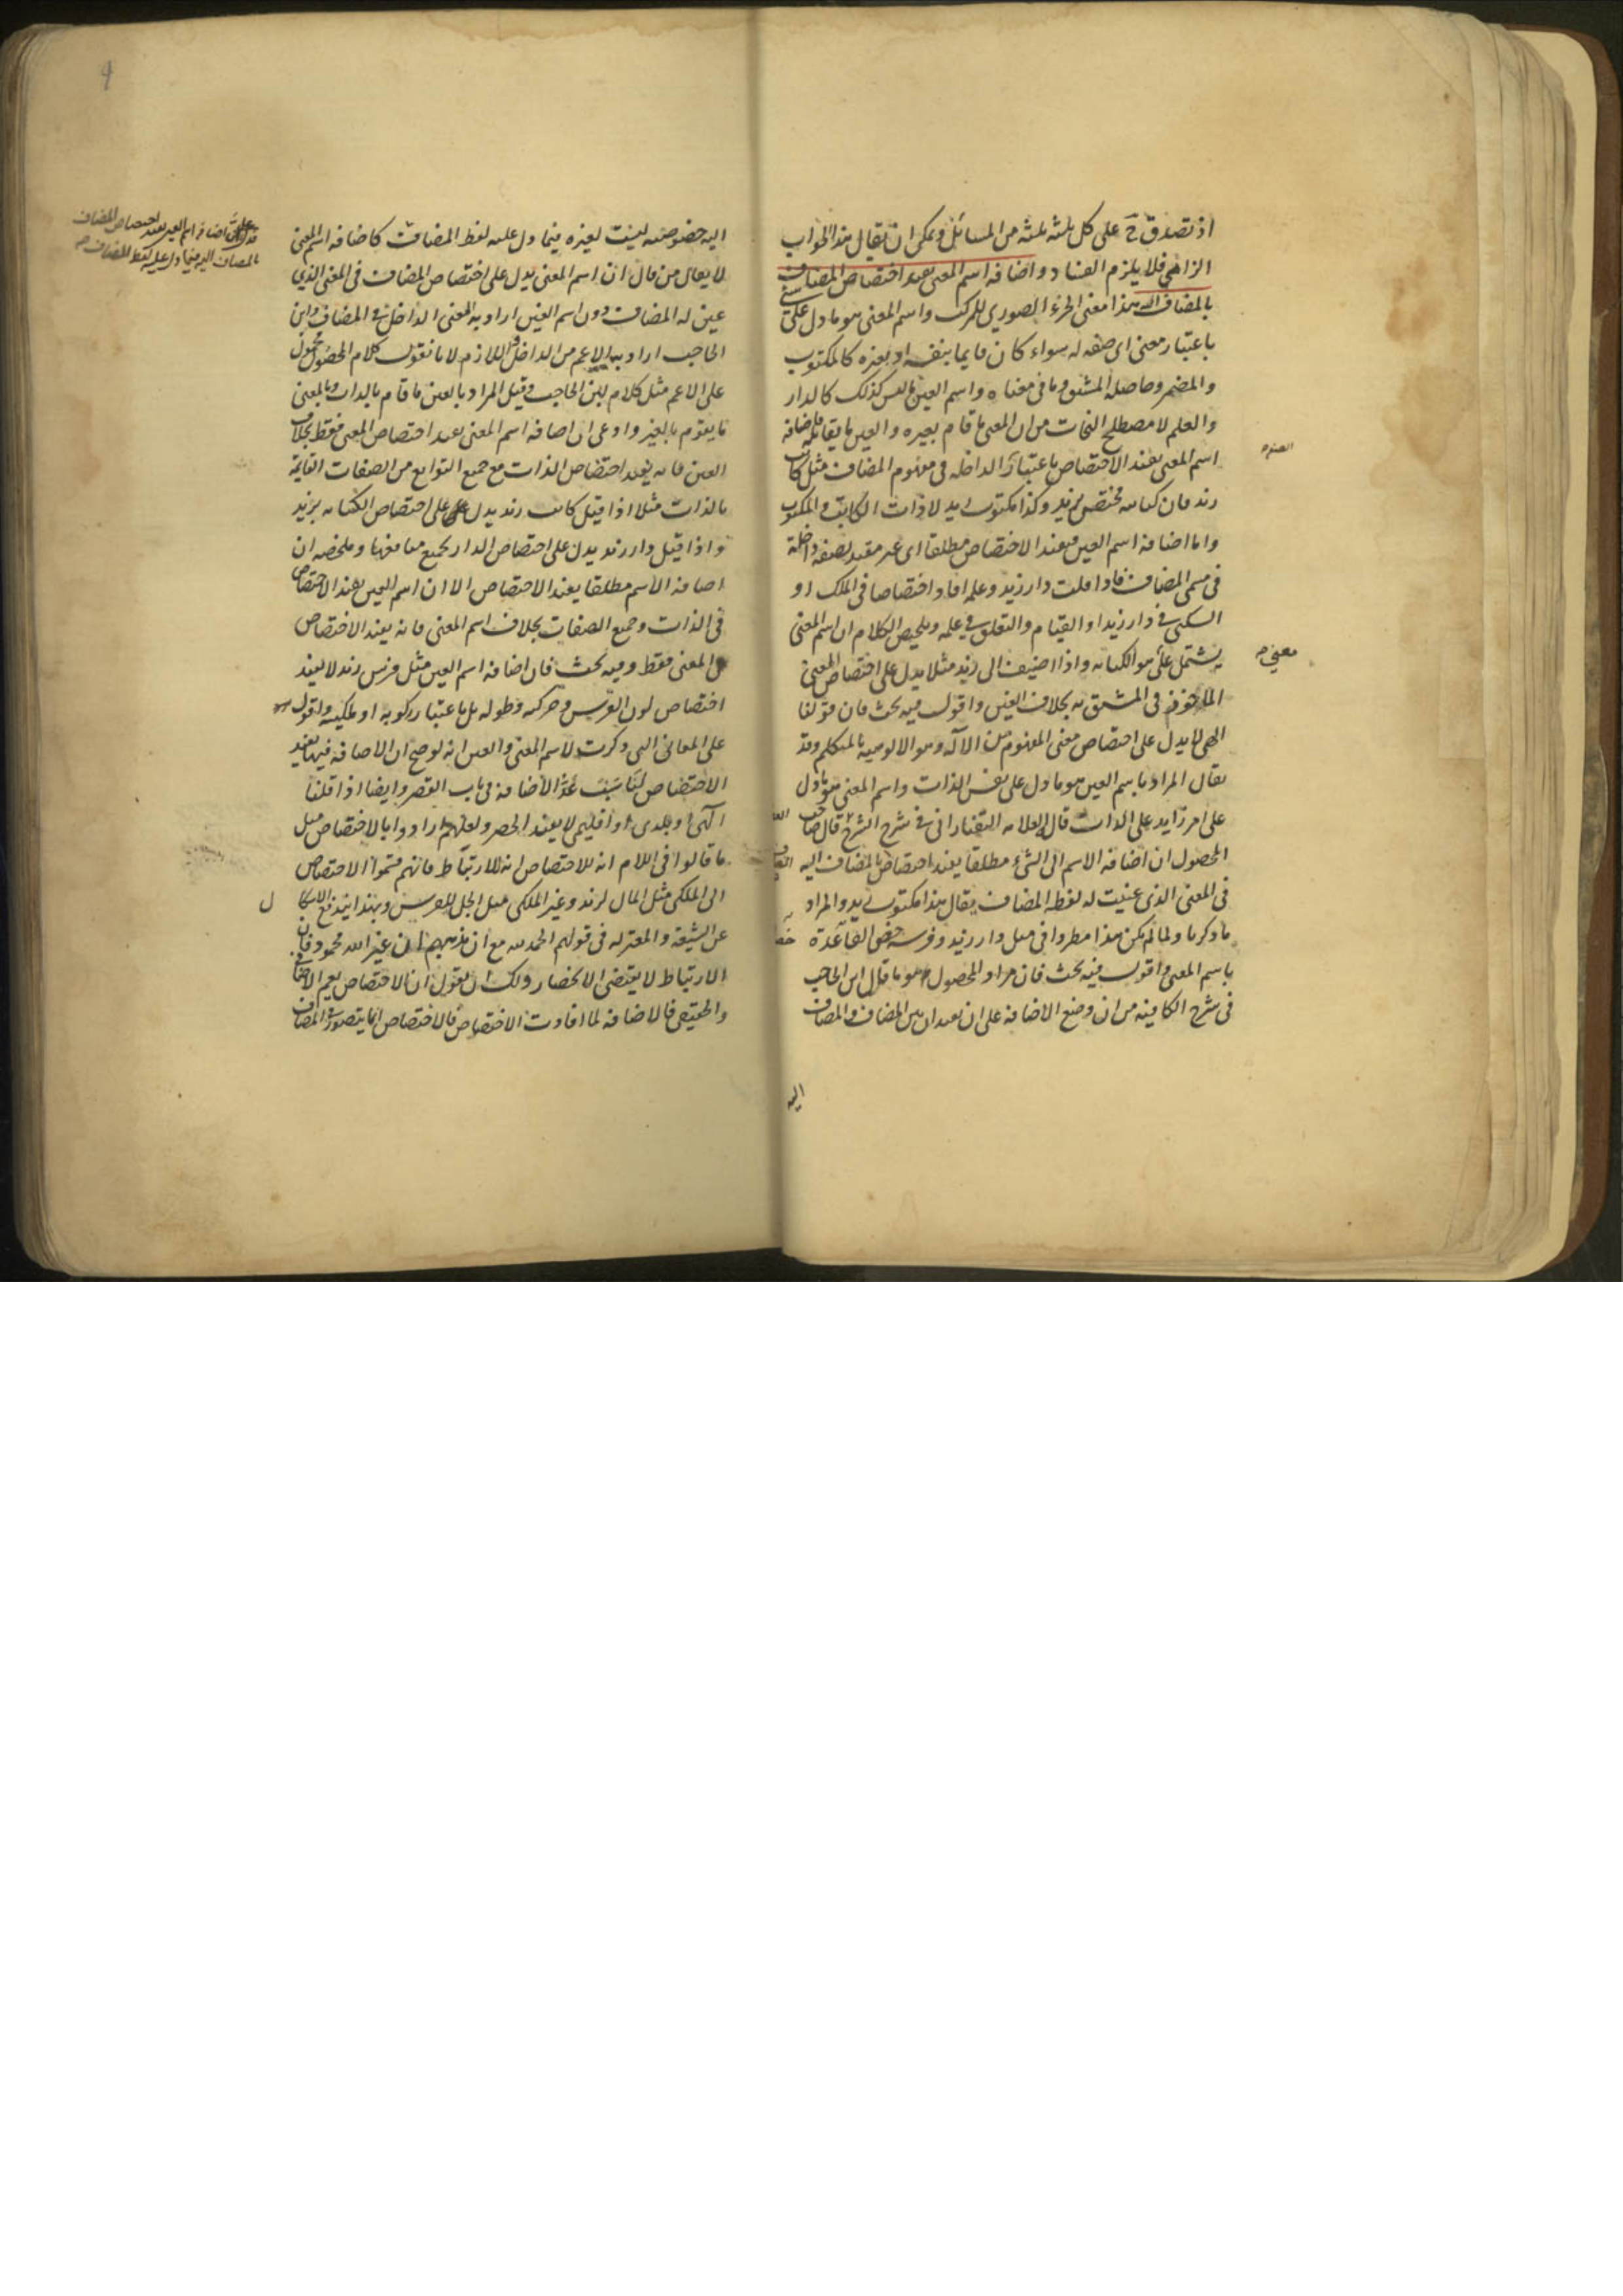 اذ تصدق ح على كل ثلثة ثلثة من المسائل ويمكن ان يقال هذا الجواب
الزامي فلا يلزم الفساد واضافة اسم المعنى يفيد اختصاص المضاف
بالمضاف اليه هذا معنى الجزء الصوري للمركب واسم المعنى هو ما دل على شئ
باعتبار معنى اى صفة له سواء كان قايما بنفسه او بغيره كالمكتوب
والمضمر وحاصله المشتق وما في معناه واسم العين ما ليس كذلك كالدار
والعلم لا مصطلح النحاة من ان المعنى ما قام بغيره والعين ما يقابله فاضافة
اسم المعنى يفيد الاختصاص باعتبار الداخلة في مفهوم المضاف مثل كاتب
زيد فان كتابته مختص بزيد وكذا مكتوب زيد لا ذات الكاتب والمكتوب
واما اضافة اسم العين فيفيد الاختصاص مطلقا اى غير مقيد بصفة داخلة
في مسمى المضاف فاذا قلت دار زيد وعلمه افاد اختصاصا في الملك او
السكنى في دار زيد او القيام والتعلق في علمه وتلخيص الكلام ان اسم المعنى
يشتمل على هو الكتابة واذا اضيف الى زيد مثلا يدل على اختصاص المعنى
المأخوذ في المشتق به بخلاف العين واقول فيه بحث فان قولنا
الهى لا يدل على اختصاص معنى المفهوم من الآله وهو الالوهية بالمتكلم وقد
يقال المراد باسم العين هو ما دل على نفس الذات واسم المعنى هو ما دل
على امر زايد على الذات قال العلامة التفتازانى في شرح الشرح قال صاحب
المحصول ان اضافة الاسم الى الشئ مطلقا يفيد اختصاص بالمضاف اليه
في المعنى الذى عنيت له لفظة المضاف يقال هذا مكتوب زيد والمراد
ما ذكرنا ولما لم يكن هذا مطردا في مثل دار زيد وفرسه خص القاعدة
باسم المعنى واقول فيه بحث فان مراد المحصول هو ما قال ابن الحاجب
في شرح الكافية من ان وضع الاضافة على ان يفيد ان بين المضاف والمضاف
اليه
معنى صح
اليه خصوصية ليست لغيره فيما دل عليه لفظ المضاف كاضافة اسم المعنى
لا يقال من قال ان اسم المعنى يدل على اختصاص المضاف في المعنى الذي
عين له المضاف دون اسم العين اراد به المعنى الداخل في المضاف وابن
الحاجب اراد به الاعم من الداخل واللازم لانا نقول كلام المحصول محمول
على الاعم مثل كلام ابن الحاجب وقيل المراد بالعين ما قام بالذات وبالمعنى
ما يقوم بالغير وادعى ان اضافة اسم المعنى يفيد اختصاص المعنى فقط بخلاف
العين فانه يفيد اختصاص الذات مع جميع التوابع من الصفات القايمة
بالذات مثلا اذا قيل كاتب زيد يدل على اختصاص الكتابة بزيد
واذا قيل دار زيد يدل على اختصاص الدار بجميع منافعها وملخصه ان
اضافة الاسم مطلقا يفيد الاختصاص الا ان اسم العين يفيد الاختصاص
في الذات وجميع الصفات بخلاف اسم المعنى فانه يفيد الاختصاص
في المعنى فقط وفيه بحث فان اضافة اسم العين مثل فرس زيد لا يفيد
اختصاص لون الفرس وحركته وطوله بل باعتبار ركوبه او ملكيته واقول
على المعانى التى ذكرت لاسم المعنى والعين انه لو صح ان الاضافة فيها يفيد
الاختصاص لناسب عد الاضافة في باب القصر وايضا اذا قلنا
الهى او بلدى او اقليمى لا يفيد الحصر ولعلهم ارادوا بالاختصاص مثل
ما قالوا في اللام انه للاختصاص انه للارتباط فانهم قسموا الاختصاص
الى الملكى مثل المال لزيد وغير الملكى مثل الجل للفرس وبهذا يندفع الاشكال
عن الشيعة والمعتزلة في قولهم الحمد لله مع ان مذهبهم ان غير الله محمود فان
الارتباط لا يقتضى الانحصار ولك ان تقول ان الاختصاص يعم الاضافى
والحقيقى فالاضافة لما افادت الاختصاص فالاختصاص انما يتصور في المضاف
اضافة اسم العين يفيد اختصاص المضاف
بالمضاف اليه فيما دل عليه لفظ المضاف صح